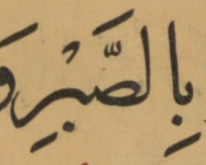 بِالصَّبْرِ وَ